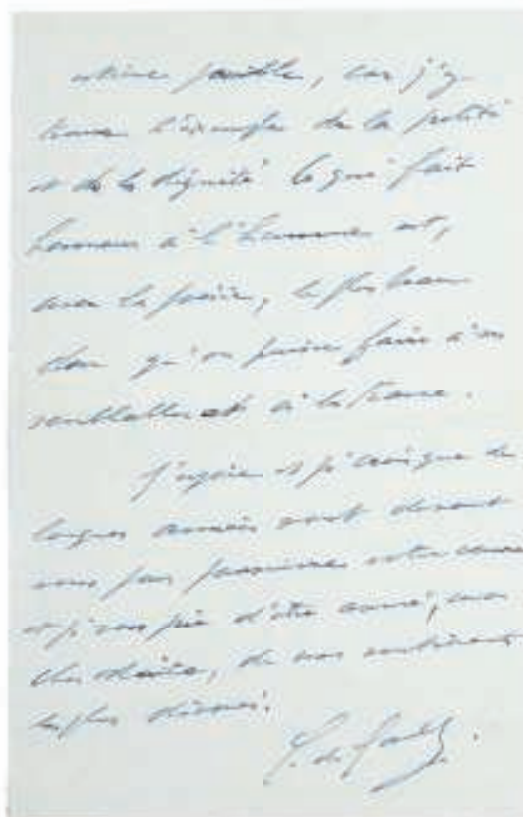 même possible, car j'y
trouve l'exemple de la
et de la dignité. Ce qui fait
honneur à l'homme est,
avec la poésie, le plus beau
don qu'on puisse faire à ses
semblables et à la France.
J'espère et je crois que de
longues années sont devant
vous pour poursuivre votre
et je vous prie d'être assuré, mon
cher Maître, de mes sentiments
les plus
C. de Gaulle.